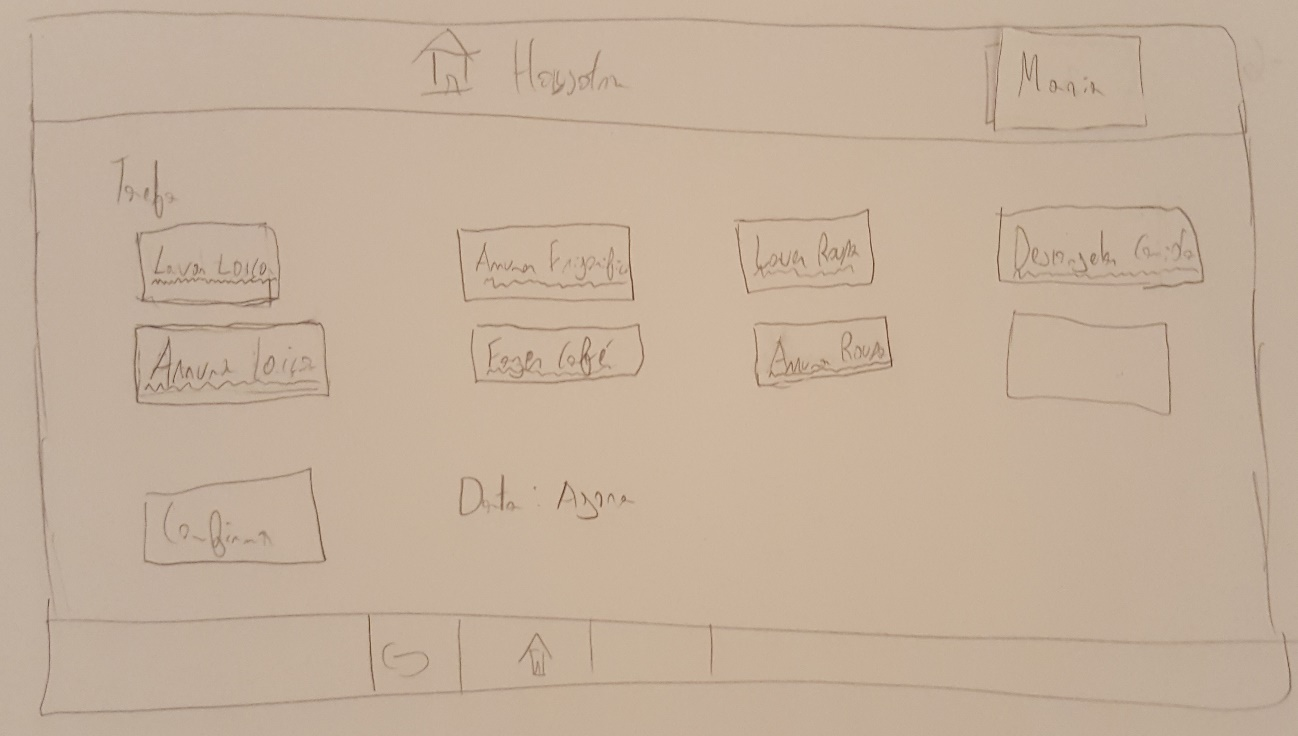 Maria
Tarefa
Lavar Loiça
Arrumar Frigorífic
Lavar Roupa
Descongelar Comida
Arrumar Loiça
Fazer Café
Arrumar Roupa
Confirmar
Data: Agora